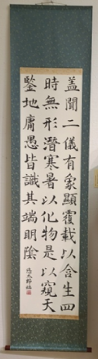 蓋聞二儀有象顯覆載以含生四
時無形潛寒暑以化物是以窺天
鑒地庸愚皆識其端明陰